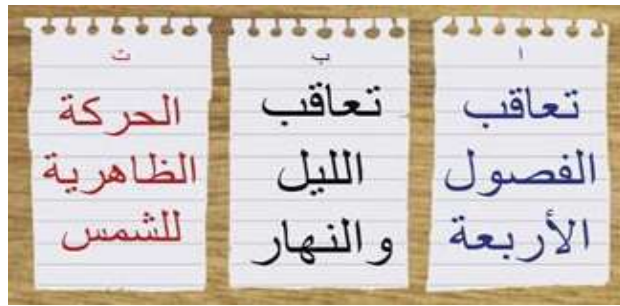 ا
تعاقب
الفصول
الأربعة
ب
تعاقب
الليل
والنهار
ت
الحركة
الظاهرية
للشمس